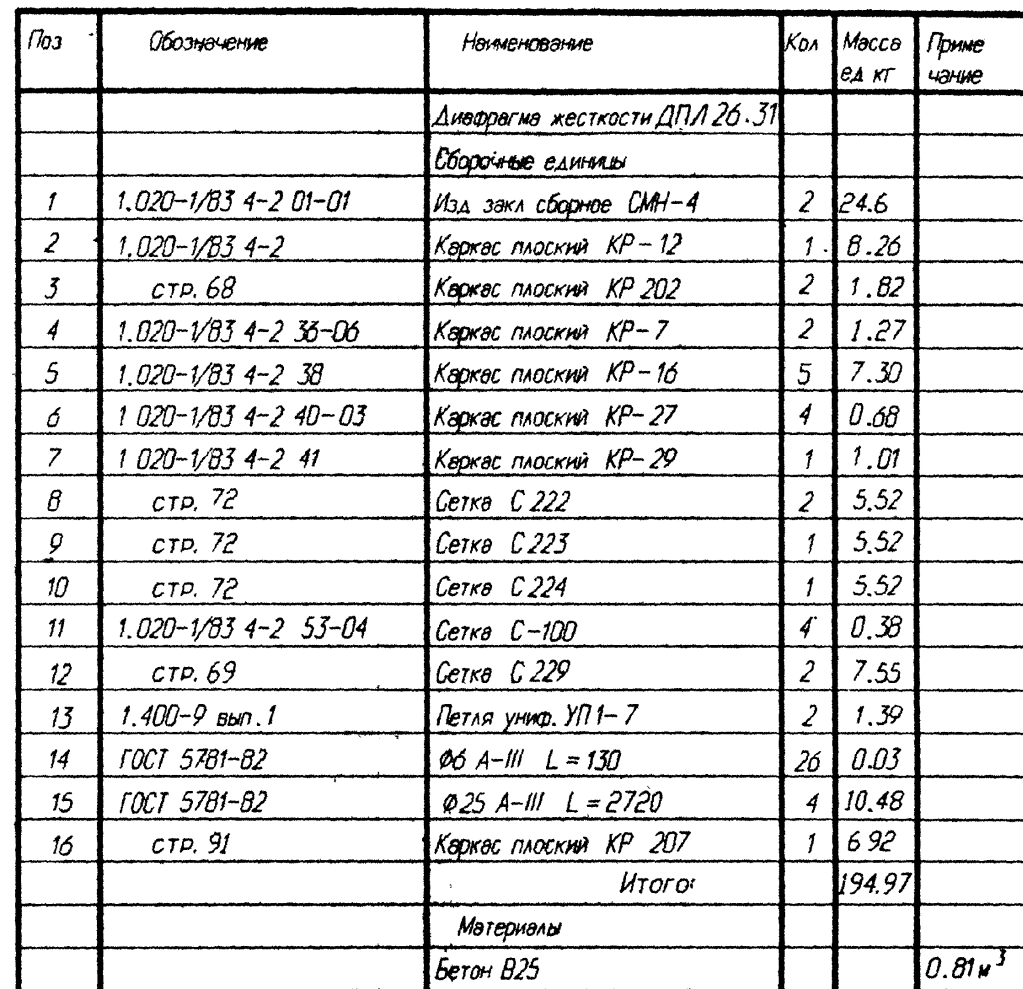 Поз Обозначение Наименование Кол Масса ед кг Приме чание
Диафрагма жесткости ДПЛ 26.31
Сборочные единицы
1 1.020-1/83 4-2 01-01 Изд закл сборное СМН-4 2 24.6
2 1.020-1/83 4-2 Каркас плоский КР-12 1 8.26
3 стр. 68 Каркас плоский КР 202 2 1.82
4 1.020-1/83 4-2 36-06 Каркас плоский КР-7 2 1.27
5 1.020-1/83 4-2 38 Каркас плоский КР-16 5 7.30
6 1 020-1/83 4-2 40-03 Каркас плоский КР-27 4 0.68
7 1 020-1/83 4-2 41 Каркас плоский КР-29 1 1.01
8 стр. 72 Сетка С 222 2 5.52
9 стр. 72 Сетка С 223 1 5.52
10 стр. 72 Сетка С 224 1 5.52
11 1.020-1/83 4-2 53-04 Сетка С-100 4 0.38
12 стр. 69 Сетка С 229 2 7.55
13 1.400-9 вып.1 Петля униф. УП1-7 2 1.39
14 ГОСТ 5781-82 ⌀6 А-III L=130 26 0.03
15 ГОСТ 5781-82 ⌀25 А-III L=2720 4 10.48
16 стр. 91 Каркас плоский КР 207 1 6 92
Итого: 194.97
Материалы
Бетон В25 0.81 м³